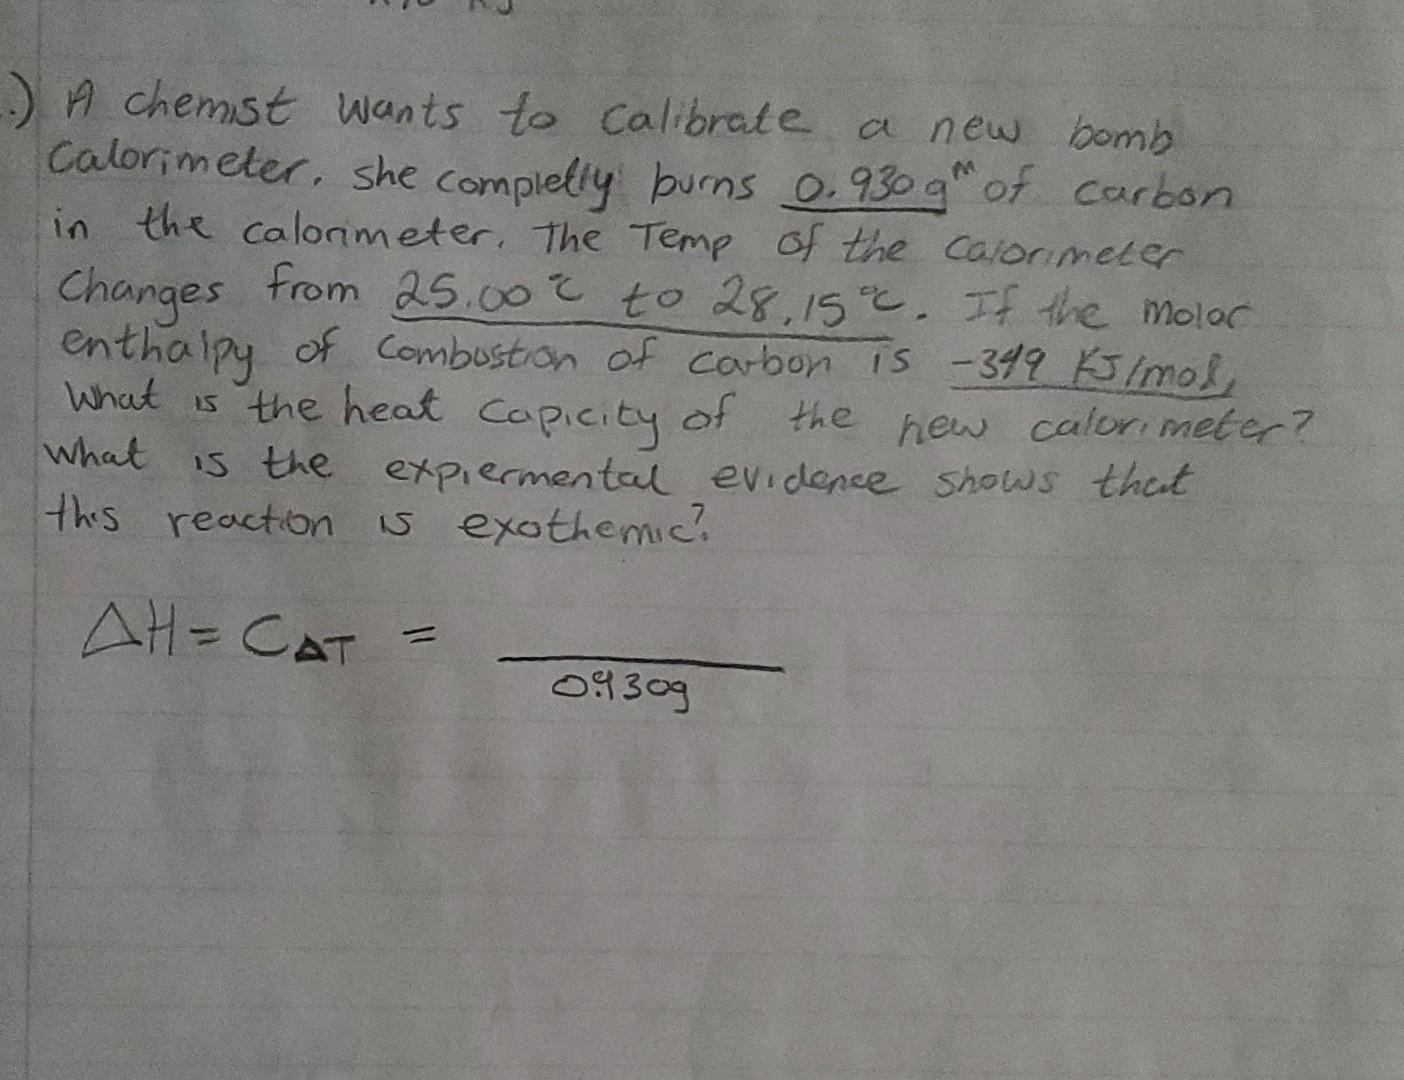 .) A chemist wants to calibrate a new bomb
Calorimeter. she completly burns 0.930 g m of carbon
in the calorimeter. The Temp of the calorimeter
Changes from 25.00 °C to 28.15 °C. If the molar
enthalpy of combustion of carbon is -349 KJ/mol,
What is the heat capicity of the new calorimeter?
What is the expiermental evidence shows that
this reaction is exothemic?
ΔH = CΔT =
0.930g